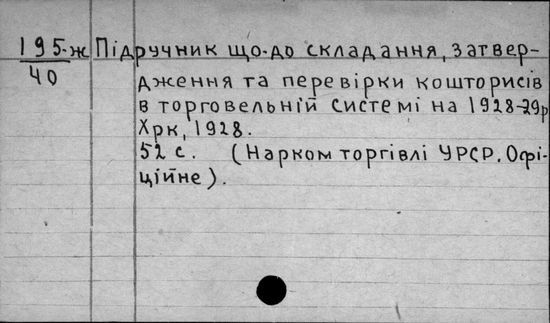 195-ж Підручник що-до складання, затвер-
40 дження та перевірки кошторисів
в торговельній системі на 1928-29р
Хрк, 1928.
52 с. (Нарком торгівлі УРСР. Офі-
ційне).